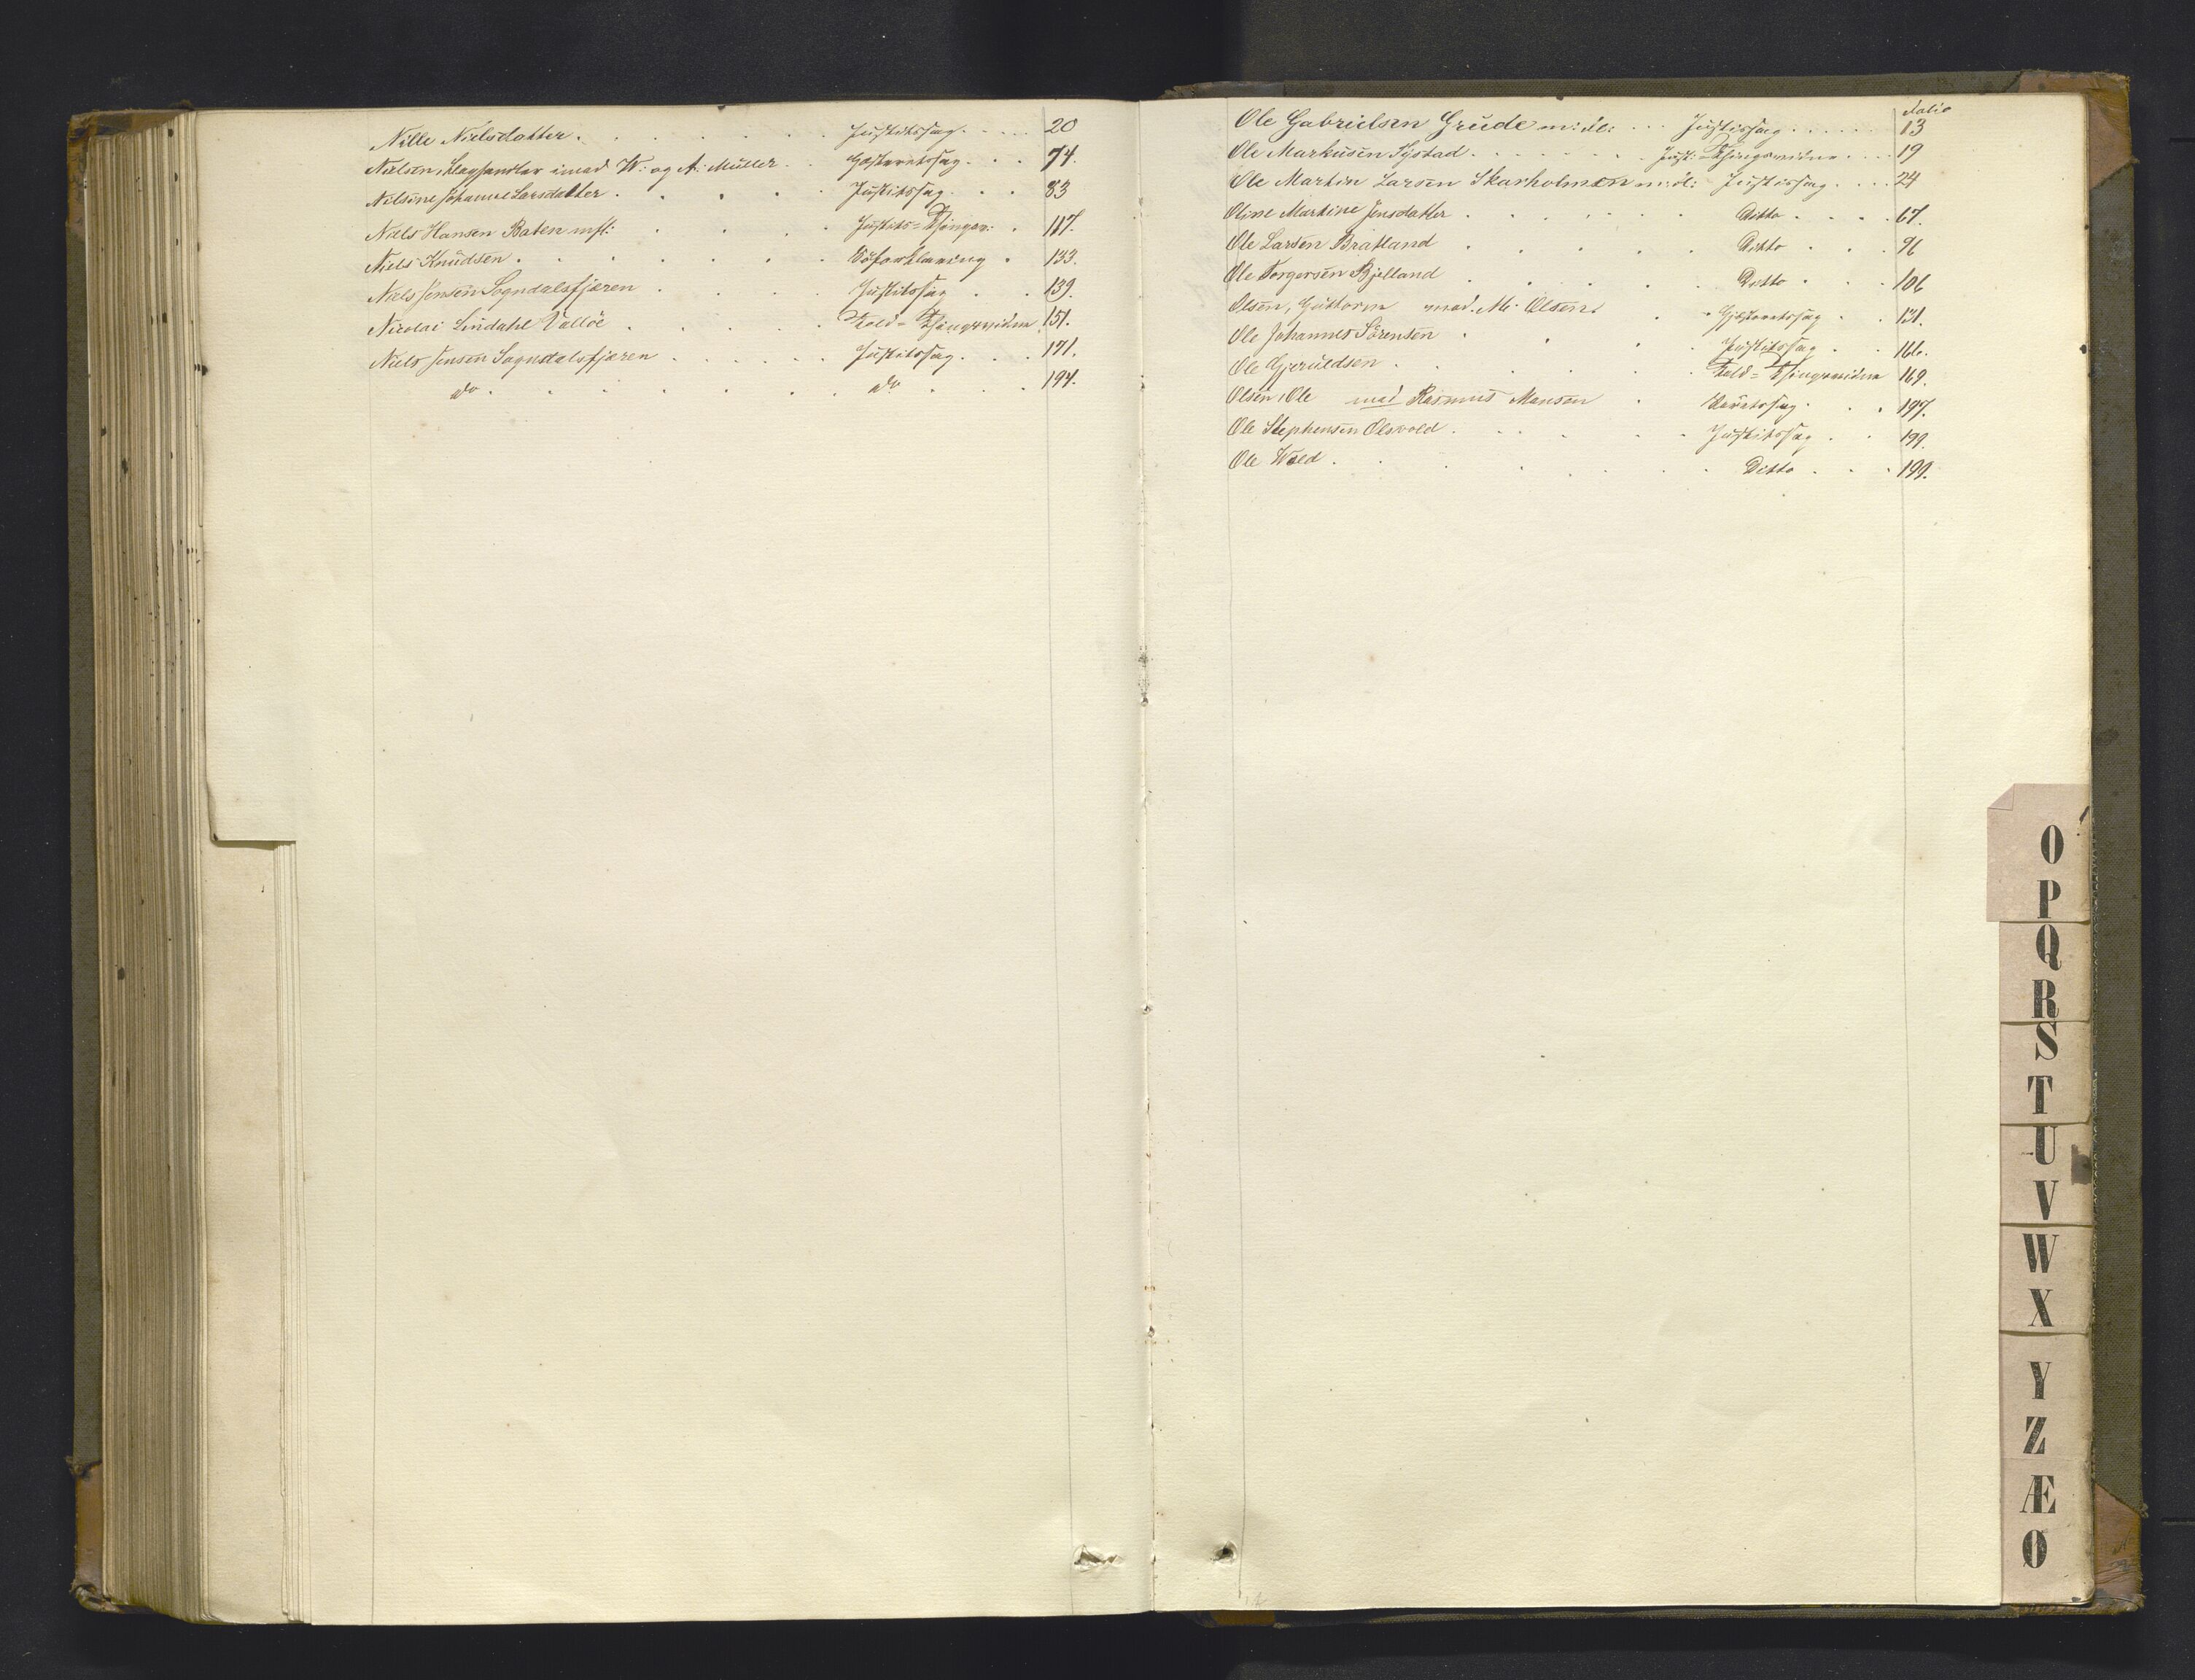 Nille Nielsdatter . . . . . . Justitssag . . . . 20
Nielsen, imod W: og A: Müller . . Gjesteretssag . . . 74.
Nilsine Johanne Larsdatter . . . . Justitssag . . . 83
Niels Hansen Baten mfl: . . . . Justits= Thingsv: . 117.
Niels Knudsen . . . . . . . Söforklaring . 133.
Niels Jensen Sogndalsfjæren . . . . Justitssag . . 139.
Nicolai Lindahl Valløe . . . . . Told= Thingsvidne 151.
Niels Jensen Sogndalsfjæren . . . . . . Justitssag . . . 171.
do . . . . . . . do . . . . 194.
Folio
Ole Gabrielsen Grude m: fl: . . . Justitssag . . . . . . 13
Ole Markusen Systad . . . . . . . Just: Thingsvidne . . . . 19
Ole Martin Larsen Skarholmen m: fl: Justitssag . . . . 24
Oline Martine Jensdatter . . . . . . Ditto . . . . 67.
Ole Larsen Bratland . . . . . Ditto . . . 96
Ole Torgersen Bjelland . . . . . Ditto . . . 106
Olsen, Guttorm mod. M. Olsen . . . Gjesteretssag . . 131.
Ole Johannes Sörensen . . . . Justitssag . . 166.
Ole Gjeruldsen . . . . . . Told= Thingsvidne 169.
Olsen, Ole mod Rasmus Monsen . Söretssag . . . 197.
Ole Stephensen Olsvold . . . . . . Justitssag . . 199.
Ole Wold . . . . . . . . Ditto . . . 199.
O
P
Q
R
S
T
U
V
W
X
Y
Z
Æ
Ø